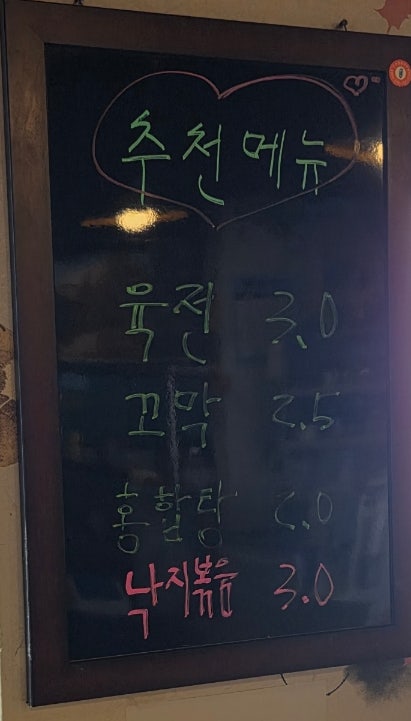 추천메뉴
육전 3.0
꼬막 2.5
홍합탕 2.0
낙지볶음 3.0